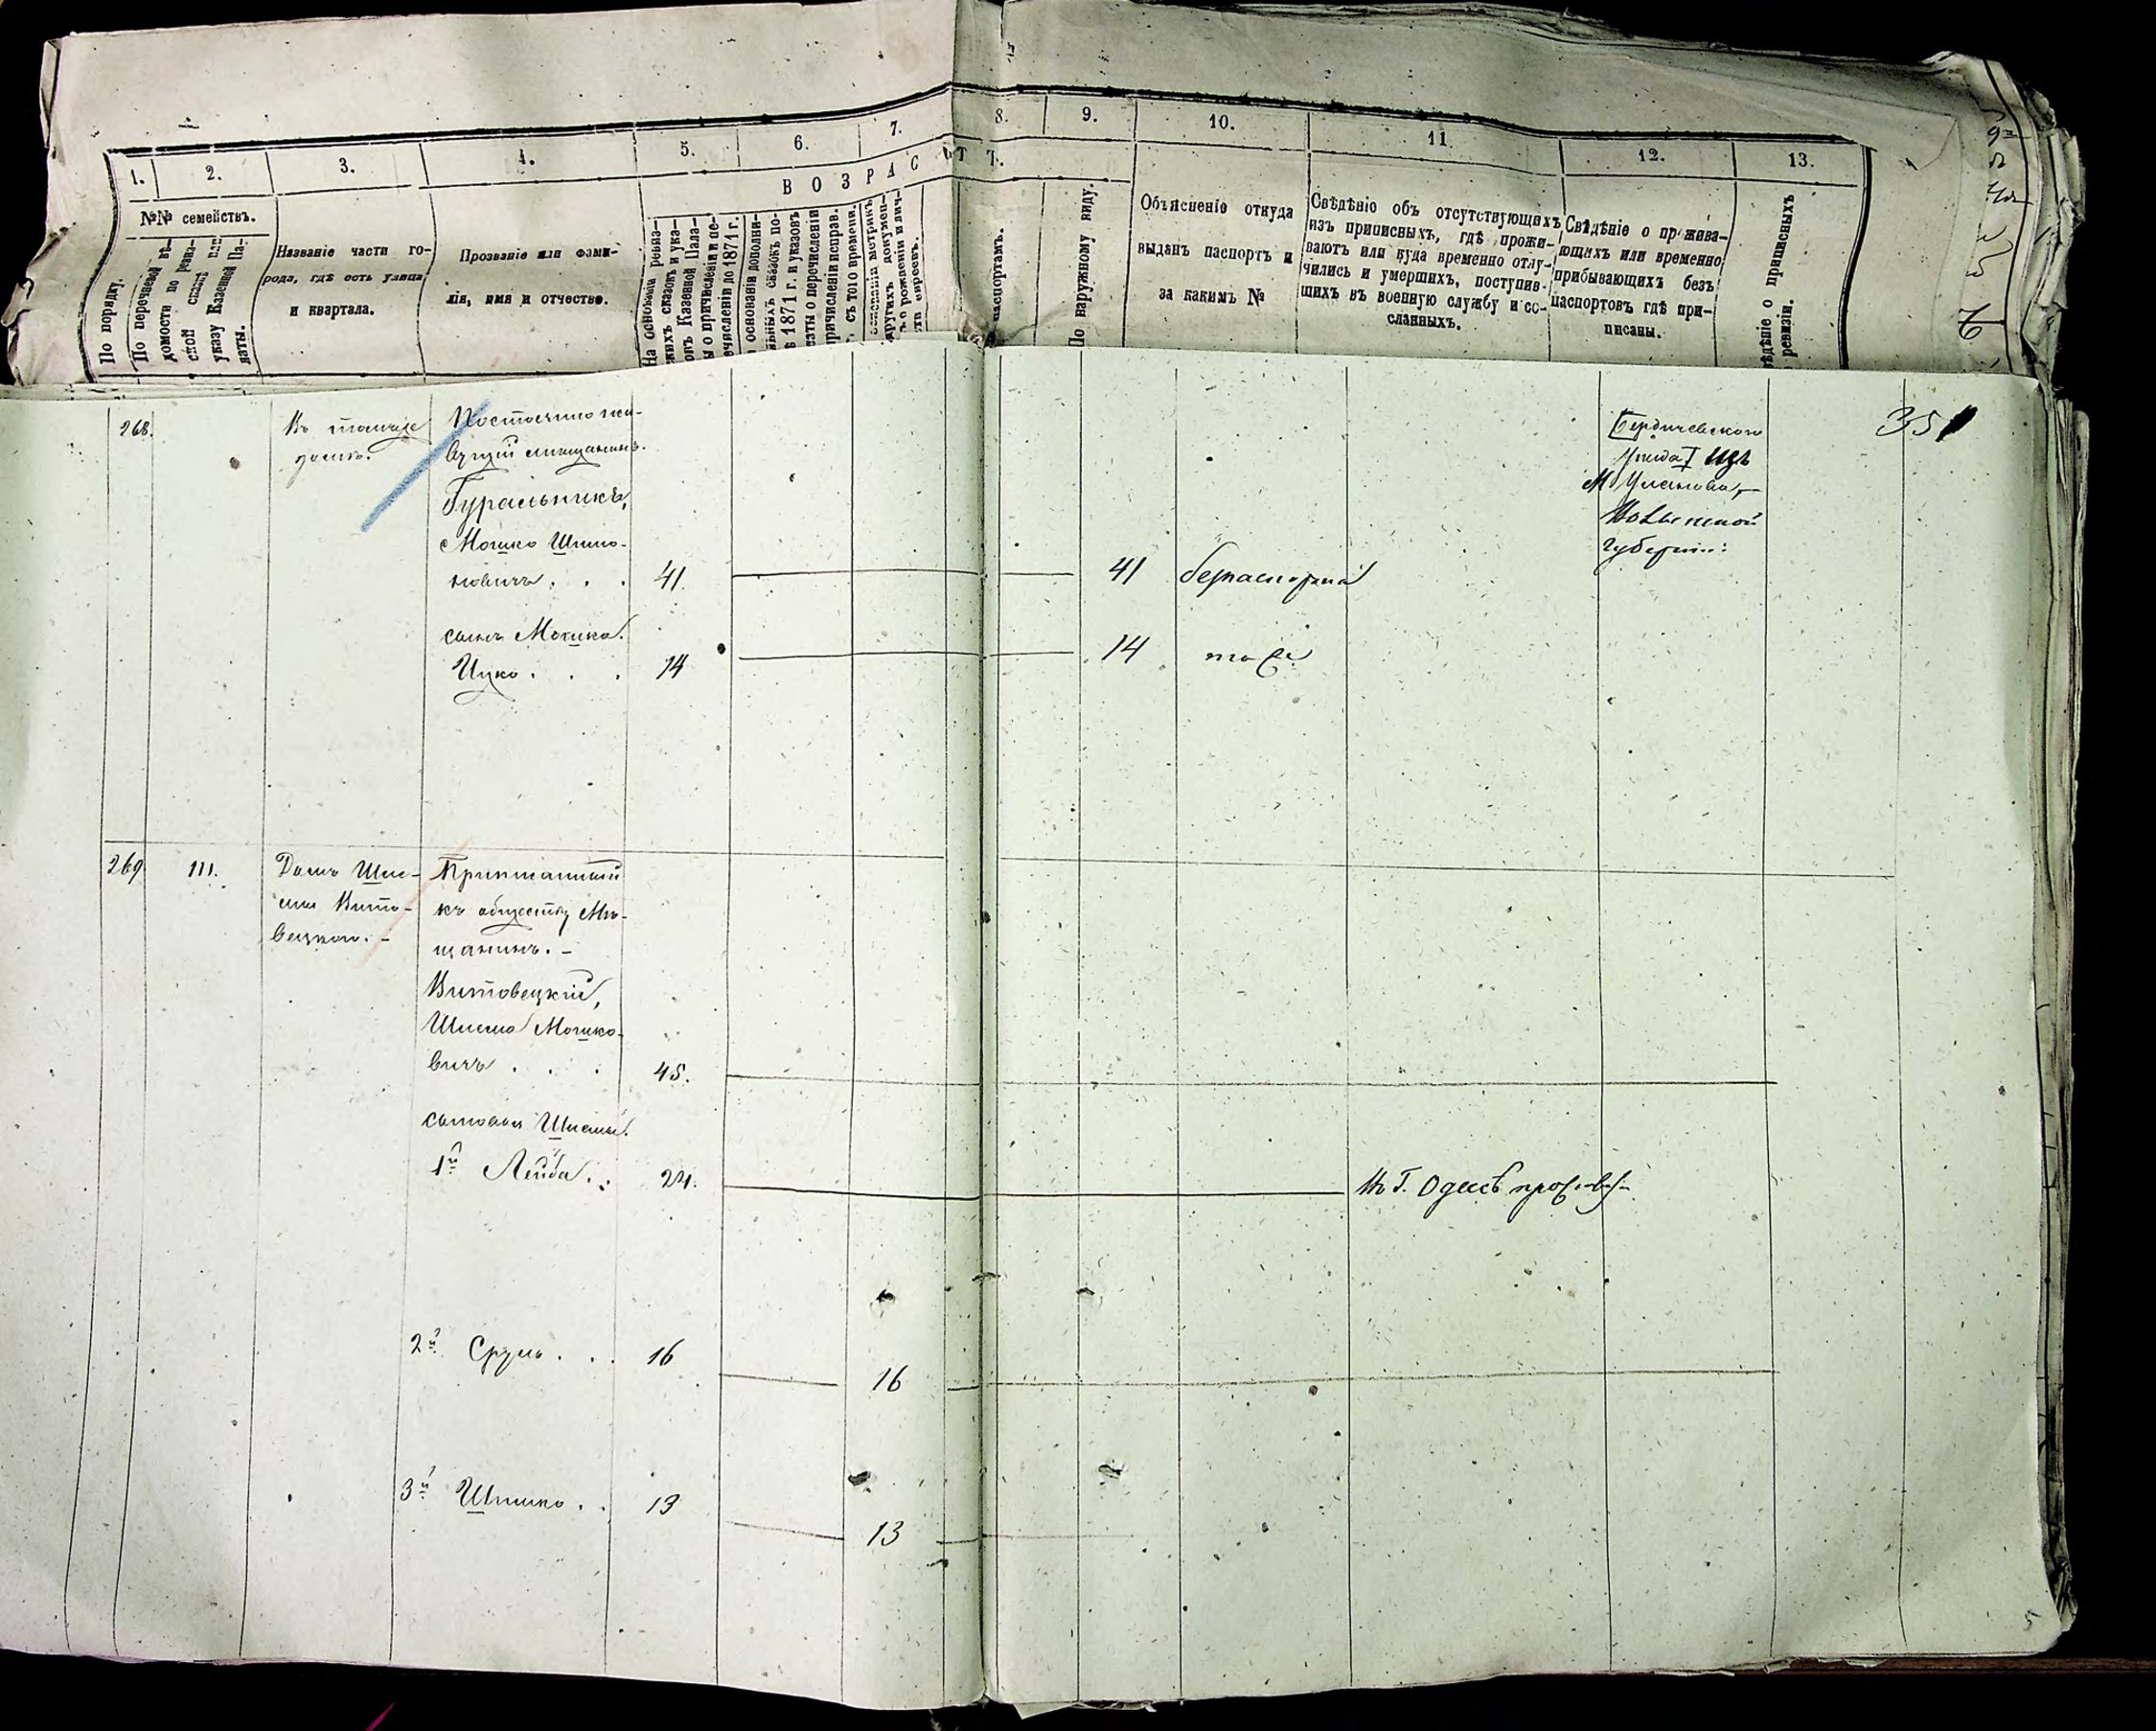 1. 2. 3. 4. 5. 6. 7. 8. 9. 10. 11. 12. 13.
В О З Р А С Т Ъ.
№№ семействъ.
По порядку.
По перечневой вѣ-
домости по ревиз-
ской сказкѣ или
указу Казенной Па-
латы.
Названіе части го-
рода, гдѣ есть улица
и квартала.
Прозваніе или фами-
лія, имя и отчество.
На основаніи ревиз-
скихъ сказокъ и ука-
зовъ Казенной Пала-
ты о причисленіи и пе-
речисленіи до 1871 г.
основаніи дополни-
сказокъ по-
1871 г. и указовъ
о перечисленіи
причисленіи исправ.
съ того времени.
метрикъ
другихъ докумен-
о рожденіи и лич-
евреевъ.
паспортамъ.
По наружному виду.
Объясненіе откуда
выданъ паспортъ и
за какимъ №
Свѣдѣніе объ отсутствующихъ
изъ приписныхъ, гдѣ прожи-
ваютъ или куда временно отлу-
чились и умершихъ, поступив-
шихъ въ военную службу и со-
сланныхъ.
Свѣдѣніе о прожива-
ющихъ или временно
прибывающихъ безъ
паспортовъ гдѣ при-
писаны.
Свѣдѣніе о приписныхъ
ревизіи.
351
268.
Постоянно жи-
вущій мѣщанинъ.
Гуральникъ,
Мошко Шимо-
новичъ . . . 41. 41
Бердичевскаго
уѣзда изъ
М. Уланова,
Волынской
губерніи:
сынъ Мошка.
Ицко . . . 14 14 тоже
269. 111.
Домъ Шле-
мы Вито-
вецкаго. -
Приписанный
къ обществу Мѣ-
щанинъ. -
Витовецкій,
Шлема Мошко-
вичъ . . . 45.
сыновья Шлемы.
1й Лейба . . 24. Въ Г. Одессѣ
2й Сруль . . . 16 16
3й Шимко . . 13 13